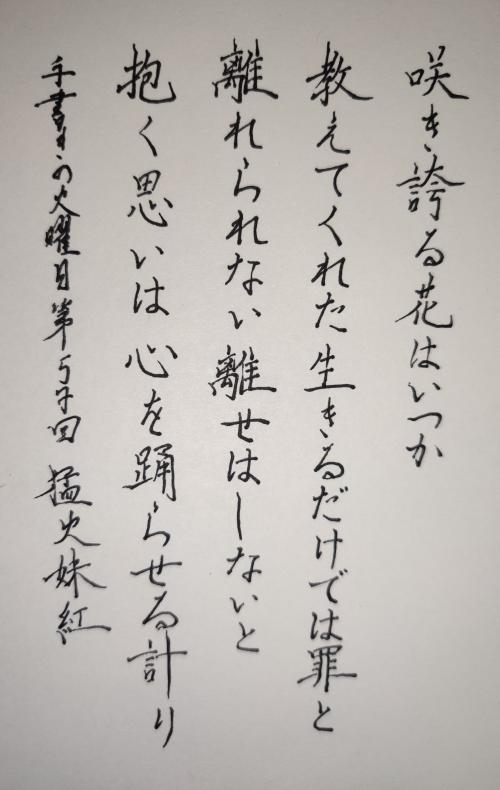 咲き誇る花はいつか
教えてくれた生きるだけでは罪と
離れられない離せはしないと
抱く思いは心を踊らせる計り
手書きの火曜日第 回 猛火妹紅